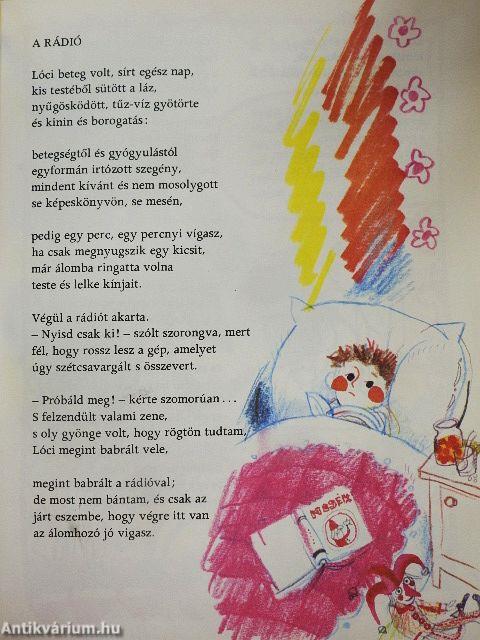 A RÁDIÓ
Lóci beteg volt, sírt egész nap,
kis testéből sütött a láz,
nyűgösködött, tűz-víz gyötörte
és kinin és borogatás:
betegségtől és gyógyulástól
egyformán irtózott szegény,
mindent kívánt és nem mosolygott
se képeskönyvön, se mesén,
pedig egy perc, egy percnyi vígasz,
ha csak megnyugszik egy kicsit,
már álomba ringatta volna
teste és lelke kínjait.
Végül a rádiót akarta.
– Nyisd csak ki! – szólt szorongva, mert
fél, hogy rossz lesz a gép, amelyet
úgy szétcsavargált s összevert.
– Próbáld meg! – kérte szomorúan . . .
S felzendült valami zene,
s oly gyönge volt, hogy rögtön tudtam,
Lóci megint babrált vele,
megint babrált a rádióval;
de most nem bántam, és csak az
járt eszembe, hogy végre itt van
az álomhozó jó vigasz.
MESÉK
Antikvárium.hu